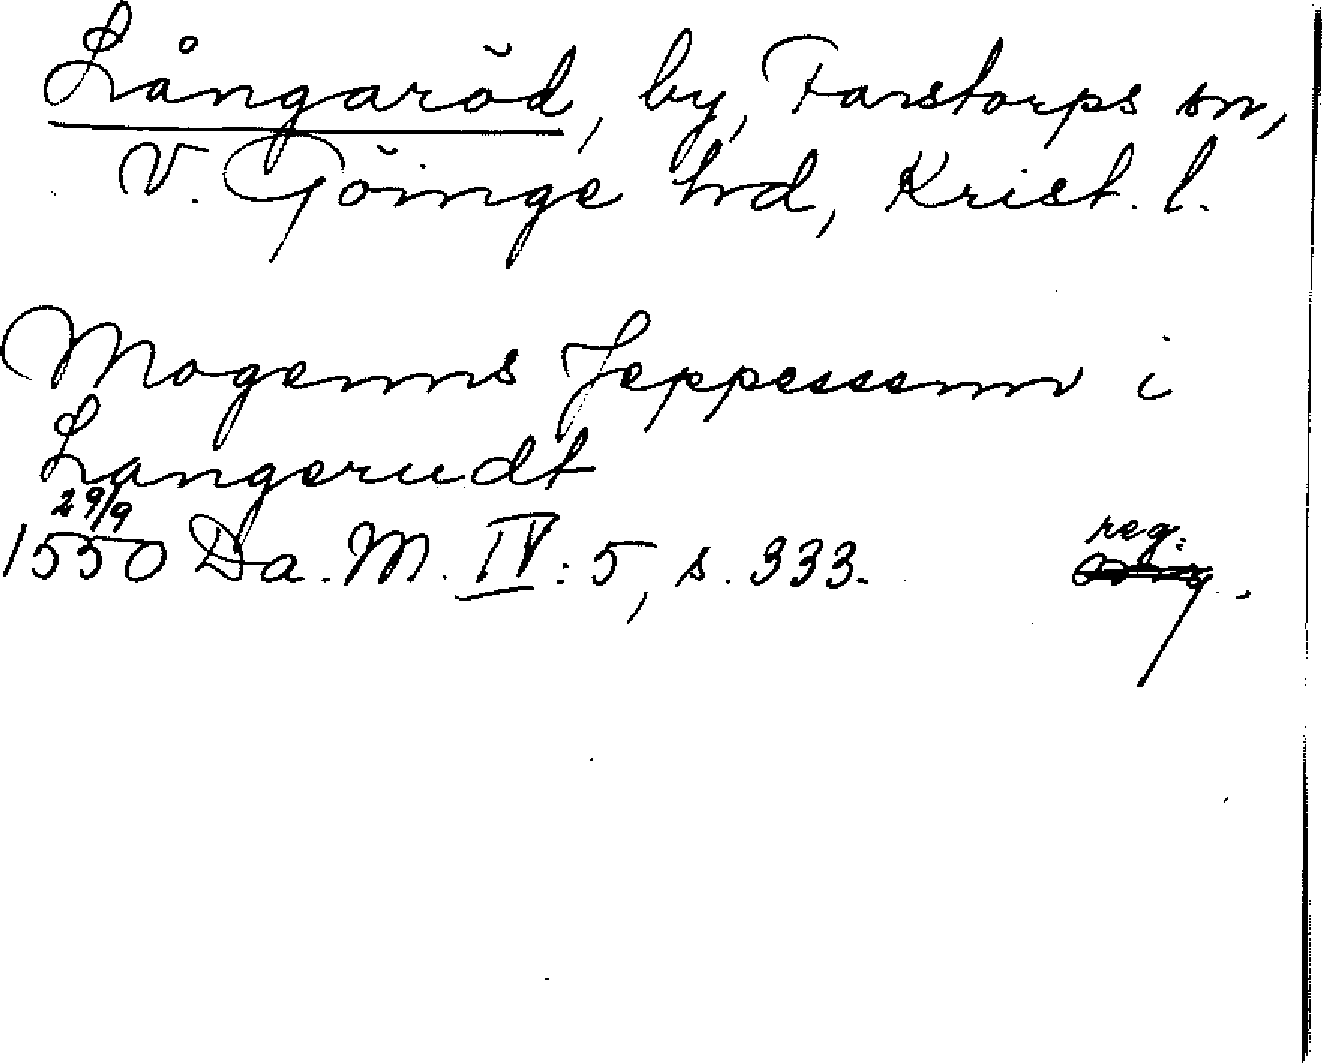 Långaröd, by, Farstorps sn,
V. Göinge hd, Krist. l.
Mogenns Jeppessenn i
Langerudt
29/9
1550 Da. M. IV: 5, s. 333.
reg.